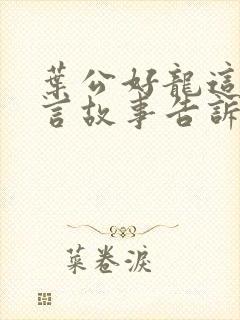 葉公好龍這
言故事告訴
菜卷淚